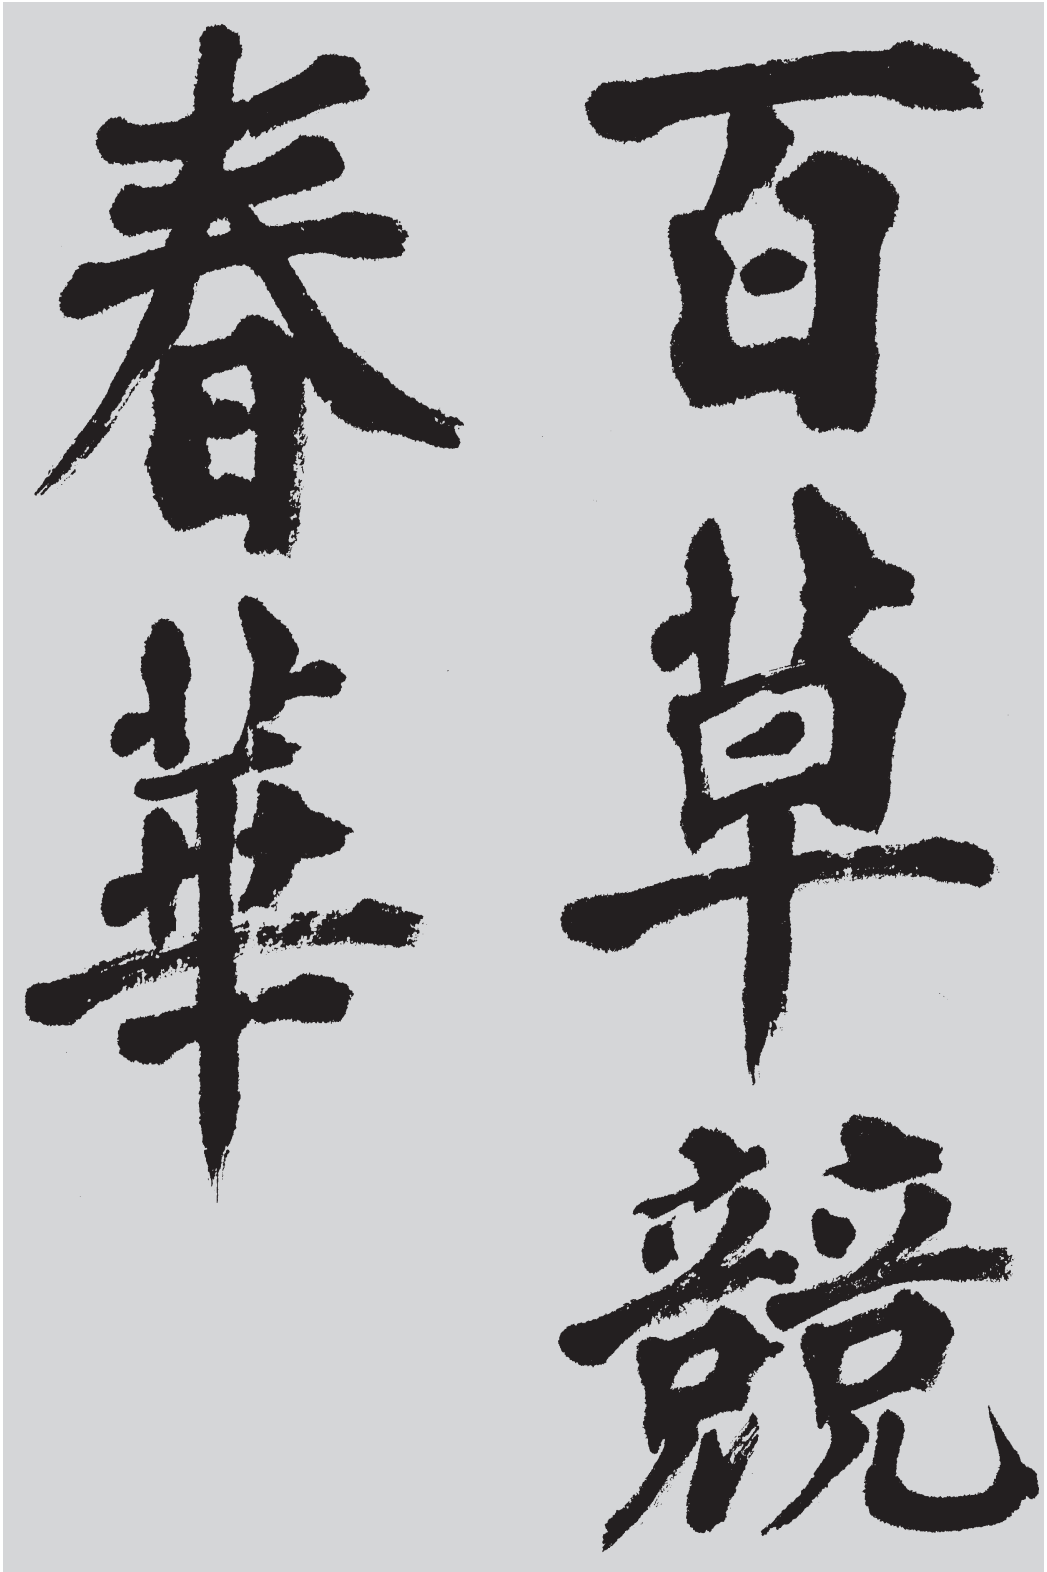 百草競
春華